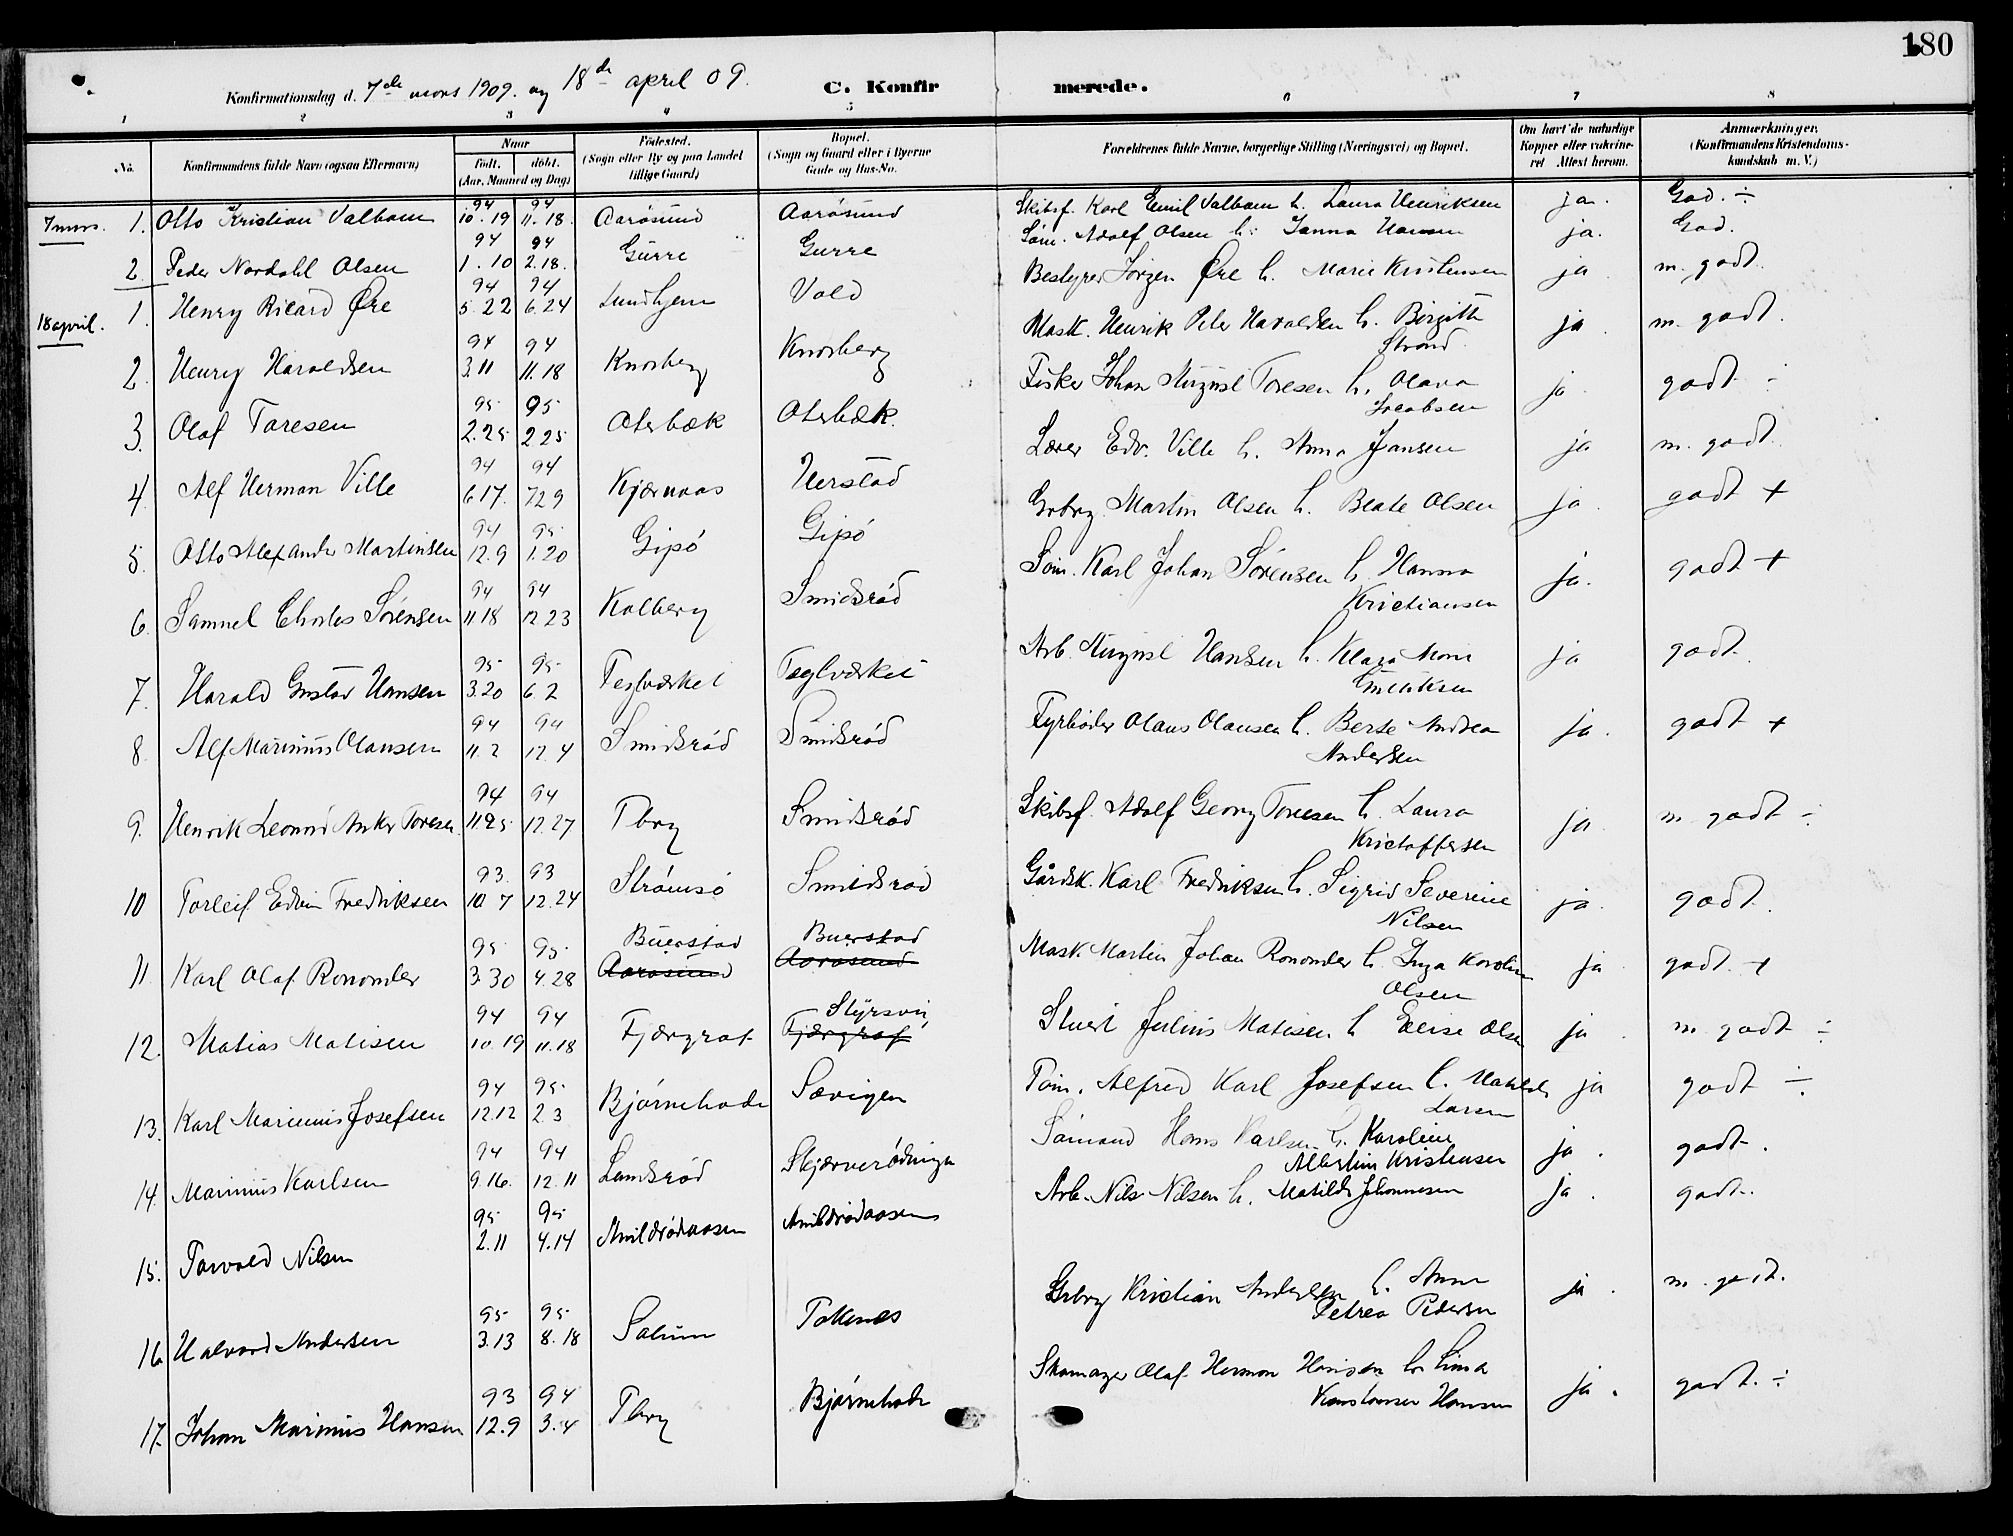 180
Konfirmationsdag d. 7de mars 1909. og 18de april 09. C. Konfirmerede.
1 2 3 4 5 6 7 8
No. Konfirmandens fulde Navn (ogsaa Efternavn) Naar födt. döbt. (Aar, Maaned og Dag) Födested. (Sogn eller By og paa Landet tillige Gaard) Bopæl. (Sogn og Gaard eller i Byerne Gade og Hus-No. Forældrenes fulde Navne, borgerlige Stilling (Næringsvei) og Bopæl. Om havt de naturlige Kopper eller vakcineret Attest herom. Anmærkninger. (Konfirmandens Kristendomskundskab m. V.)
7 mars. 1. Otto Kristian Valbom 94 10.19 94 11.18. Aarösund Aarösund Skibsf. Karl Emil Valbom h. Laura Henriksen ja. God. ÷
2. Peder Nordahl Olsen 94 1.10 94 2.18. Gurre Gurre Söm. Adolf Olsen h. Janna Hansen ja. God.
18 april. 1. Henry Rikard Øre 94 5.22 94 6.24 Lundhjem Vold Bestyrer Jörgen Øre h. Marie Kristensen ja m. godt.
2. Henry Haraldsen 94 3.11 94 11.18 Knarberg Knarberg Mask. Henrik Peter Haraldsen h. Birgitte Strand ja m. godt.
3. Olaf Toresen 95 2.25 95 2 25 Oterbæk Oterbæk. Fisker Johan August Toresen h. Olava Jacobsen ja godt ÷
4. Alf Herman Ville 94 6 17. 94 7 29 Kjærnaas Herstad Lærer Edv. Ville h. Anna Jansen ja m. godt.
5. Otto Alexander Martinsen 94 12.9 95 1.20 Gipö Gipö Grbrg. Martin Olsen h. Beate Olsen ja godt +
6. Samuel Charles Sörensen 94 11 18 94 12 23 Kolberg Smidsröd Söm. Karl Johan Sörensen h. Hanna Kristiansen ja. godt +
7. Harald Gustav Hansen 95 3.20 95 6.2 Teglværket Teglværket Arb. August Hansen h. Klara Marie ja godt.
8. Alf Marinius Olausen 94 11.2 94 12.4 Smidsröd Smidsröd Fyrböder Olaus Olausen h. Berte Andrea Andersen ja. godt +
9. Henrik Leonard Anker Toresen 94 11.25 94 12.27 Tbrg Smidsröd Skibsf. Adolf Georg Toresen h. Laura Kristoffersen ja m. godt ÷
10 Torleif Edvin Fredriksen 93. 10 7 93 12.24 Strömsö Smidsröd Gårdsk. Karl Fredriksen h. Sigrid Severine Nilsen ja. godt.
11. Karl Olaf Ronander 95 3.30 95 4.28 Buerstad Aarosund Buerstad Aarosund Mask. Martin Johan Ronander h. Inga Karoline Olsen ja godt. +
12. Matias Matisen 94 10.19 94 11.18 Fjærgrat Fjærgraf Stuert Julius Matisen h. Elise Olsen ja m. godt ÷
13. Karl Marinius Josefsen 94 12.12 95 2 3 Björnebode Sævigen Töm. Alfred Karl Josefsen h. Matilde Larsen ja godt ÷
14. Marinius Karlsen 94 9.16. 94 12.11 Landsröd Sömand Hans Karlsen h. Karoline Albertine Kristensen ja. godt.
15. Torvald Nilsen 95 2.11 95 4.14 Arb. Nils Nilsen h. Matilde Johannesen ja. godt.
16. Halvard Andersen 95 3.13 95 8.18 Solum Tokenes Grbrg Kristian Andersen h. Anna Petrea Pedersen ja. m. godt.
17. Johan Marinius Hansen 93 12.9 94 3.4 Tbrg Björnebode Skomager Olaf Herman Hansen h. Lina Konstanse Hansen ja. godt. ÷